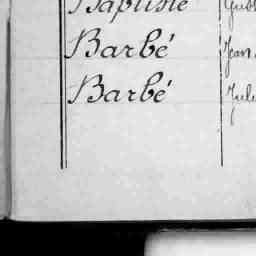 Baptiste
Barbé Jean
Barbé Jule